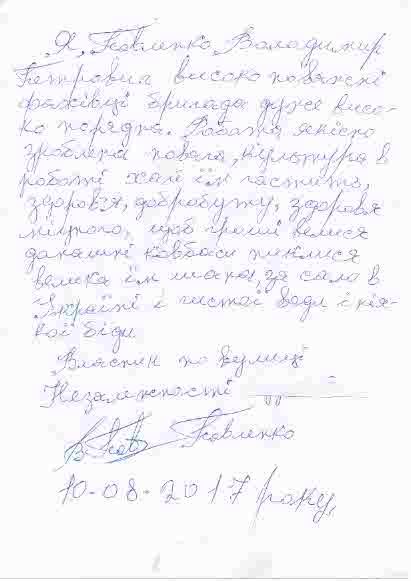 Я, Павленко Володимир
Петрович високо поважні
фахівці бригада дуже висо-
ко порядна. Робота якісно
зроблена повага, культура в
роботі хай їм щастить,
здоров'я, добробуту, здоровя
міцного, щоб гроші велися
домашні ковбаси пиклися
велика їм шана, за сала в
Україні і чистої води і нія-
кої біди
Власник по вулиці
Незалежності
Павленко
10-08-2017 року,